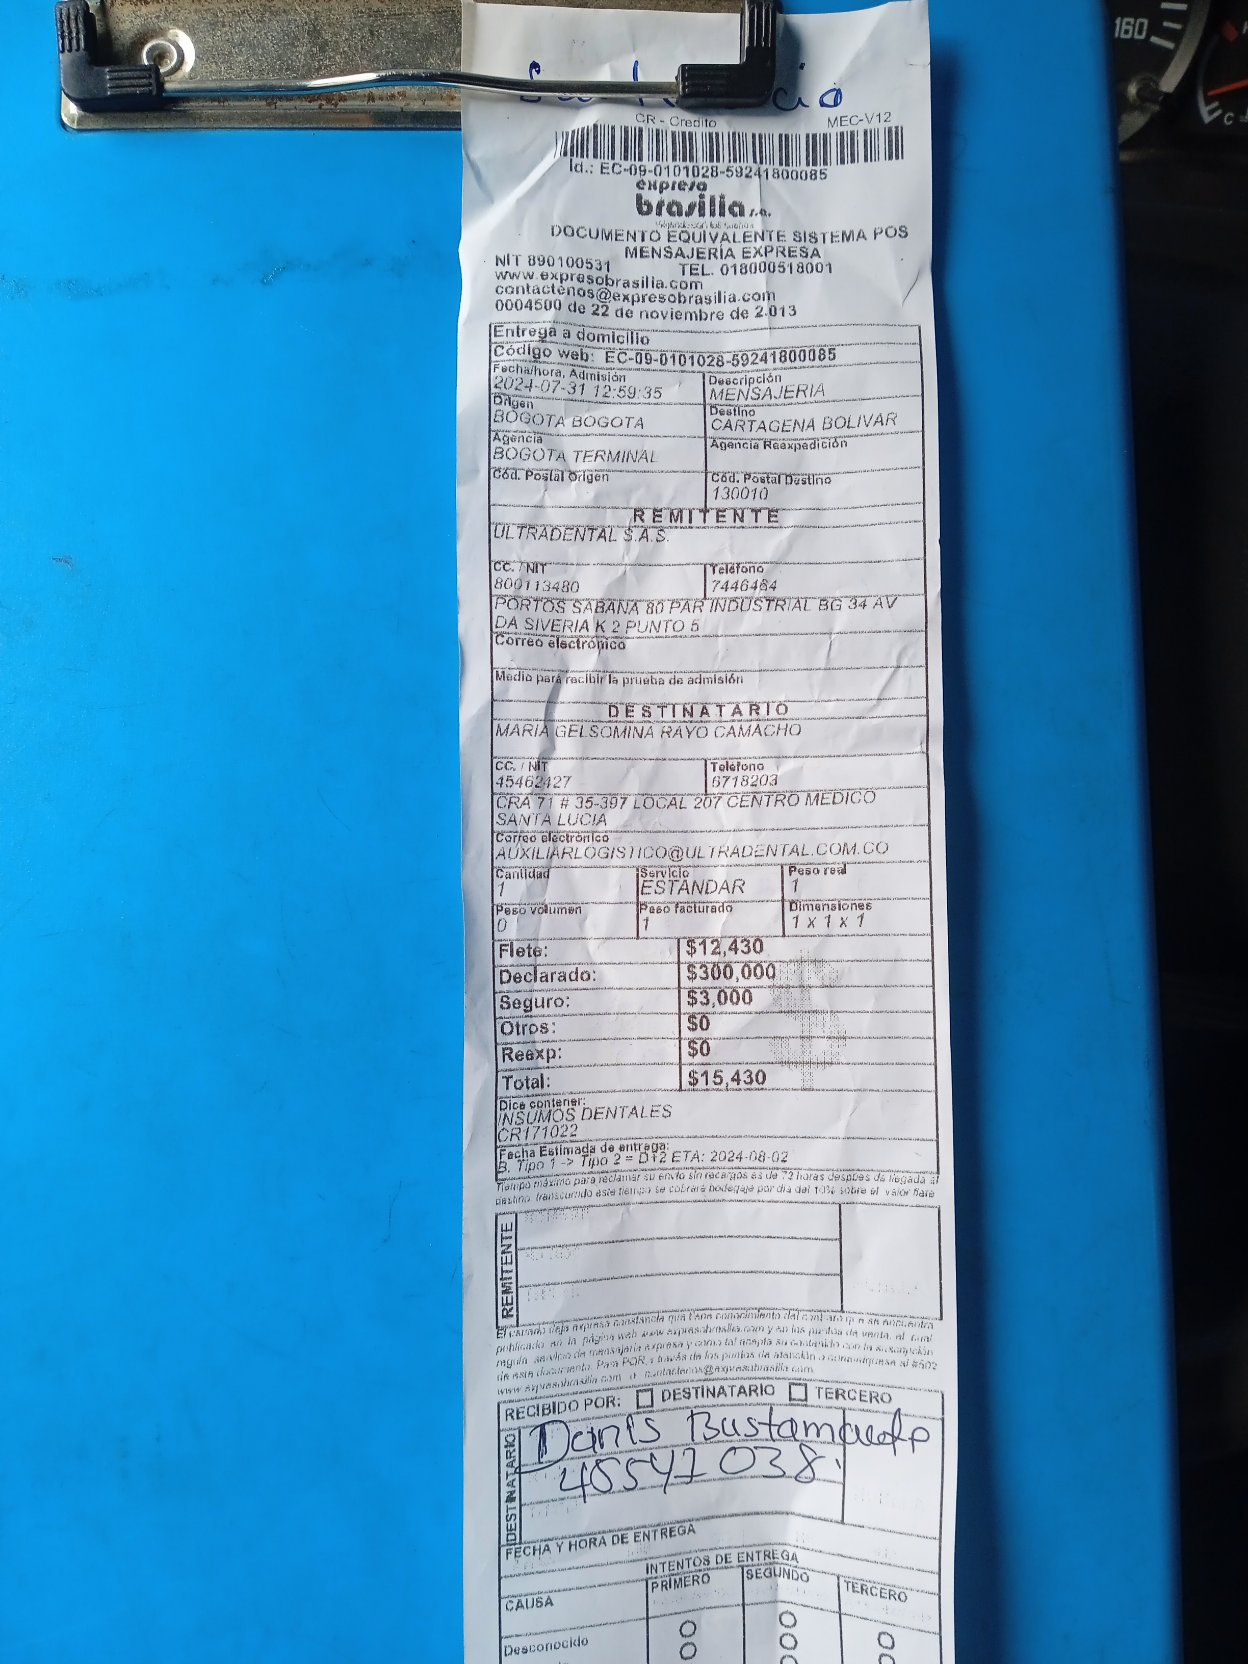 CR - Credito MEC-V12
Id.: EC-09-0101028-59241800085
expreso
brasilia s.a.
DOCUMENTO EQUIVALENTE SISTEMA POS
MENSAJERÍA EXPRESA
NIT 890100531 TEL. 018000518001
www.expresobrasilia.com
contactenos@expresobrasilia.com
0004500 de 22 de noviembre de 2.013
Entrega a domicilio
Código web: EC-09-0101028-59241800085
Fecha/hora, Admisión Descripción
2024-07-31 12:59:35 MENSAJERIA
Origen Destino
BOGOTA BOGOTA CARTAGENA BOLIVAR
Agencia Agencia Reexpedición
BOGOTA TERMINAL
Cód. Postal Origen Cód. Postal Destino
130010
REMITENTE
ULTRADENTAL S.A.S.
CC. / NIT Teléfono
800113480 7446484
PORTOS SABANA 80 PAR INDUSTRIAL BG 34 AV
DA SIVERIA K 2 PUNTO 5
Correo electrónico
Medio para recibir la prueba de admisión
DESTINATARIO
MARIA GELSOMINA RAYO CAMACHO
CC. / NIT Teléfono
45462427 6718203
CRA 71 # 35-397 LOCAL 207 CENTRO MEDICO
SANTA LUCIA
Correo electrónico
AUXILIARLOGISTICO@ULTRADENTAL.COM.CO
Cantidad Servicio Peso real
1 ESTANDAR 1
Peso volumen Peso facturado Dimensiones
0 1 1 x 1 x 1
Flete: $12,430
Declarado: $300,000
Seguro: $3,000
Otros: $0
Reexp: $0
Total: $15,430
Dice contener:
INSUMOS DENTALES
CR171022
Fecha Estimada de entrega:
B. Tipo 1 -> Tipo 2 = D+2 ETA: 2024-08-02
Tiempo máximo para reclamar su envío sin recargos es de 72 horas despues de llegada al
destino, transcurrido este tiempo se cobrará bodegaje por día del 10% sobre el valor flete
REMITENTE
El usuario deja expresa constancia que tiene conocimiento del contrato que se encuentra
publicado en la página web www.expresobrasilia.com y en los puntos de venta, el cual
regula servicio de mensajería expresa y como tal acepta su contenido con la suscripción
de este documento. Para PQR, a través de los puntos de atención o comuníquese al #502
www.expresobrasilia.com o contactenos@expresobrasilia.com
RECIBIDO POR: DESTINATARIO TERCERO
DESTINATARIO
Danis Bustamante
45541038.
FECHA Y HORA DE ENTREGA
INTENTOS DE ENTREGA
CAUSA PRIMERO SEGUNDO TERCERO
Desconocido
160
C